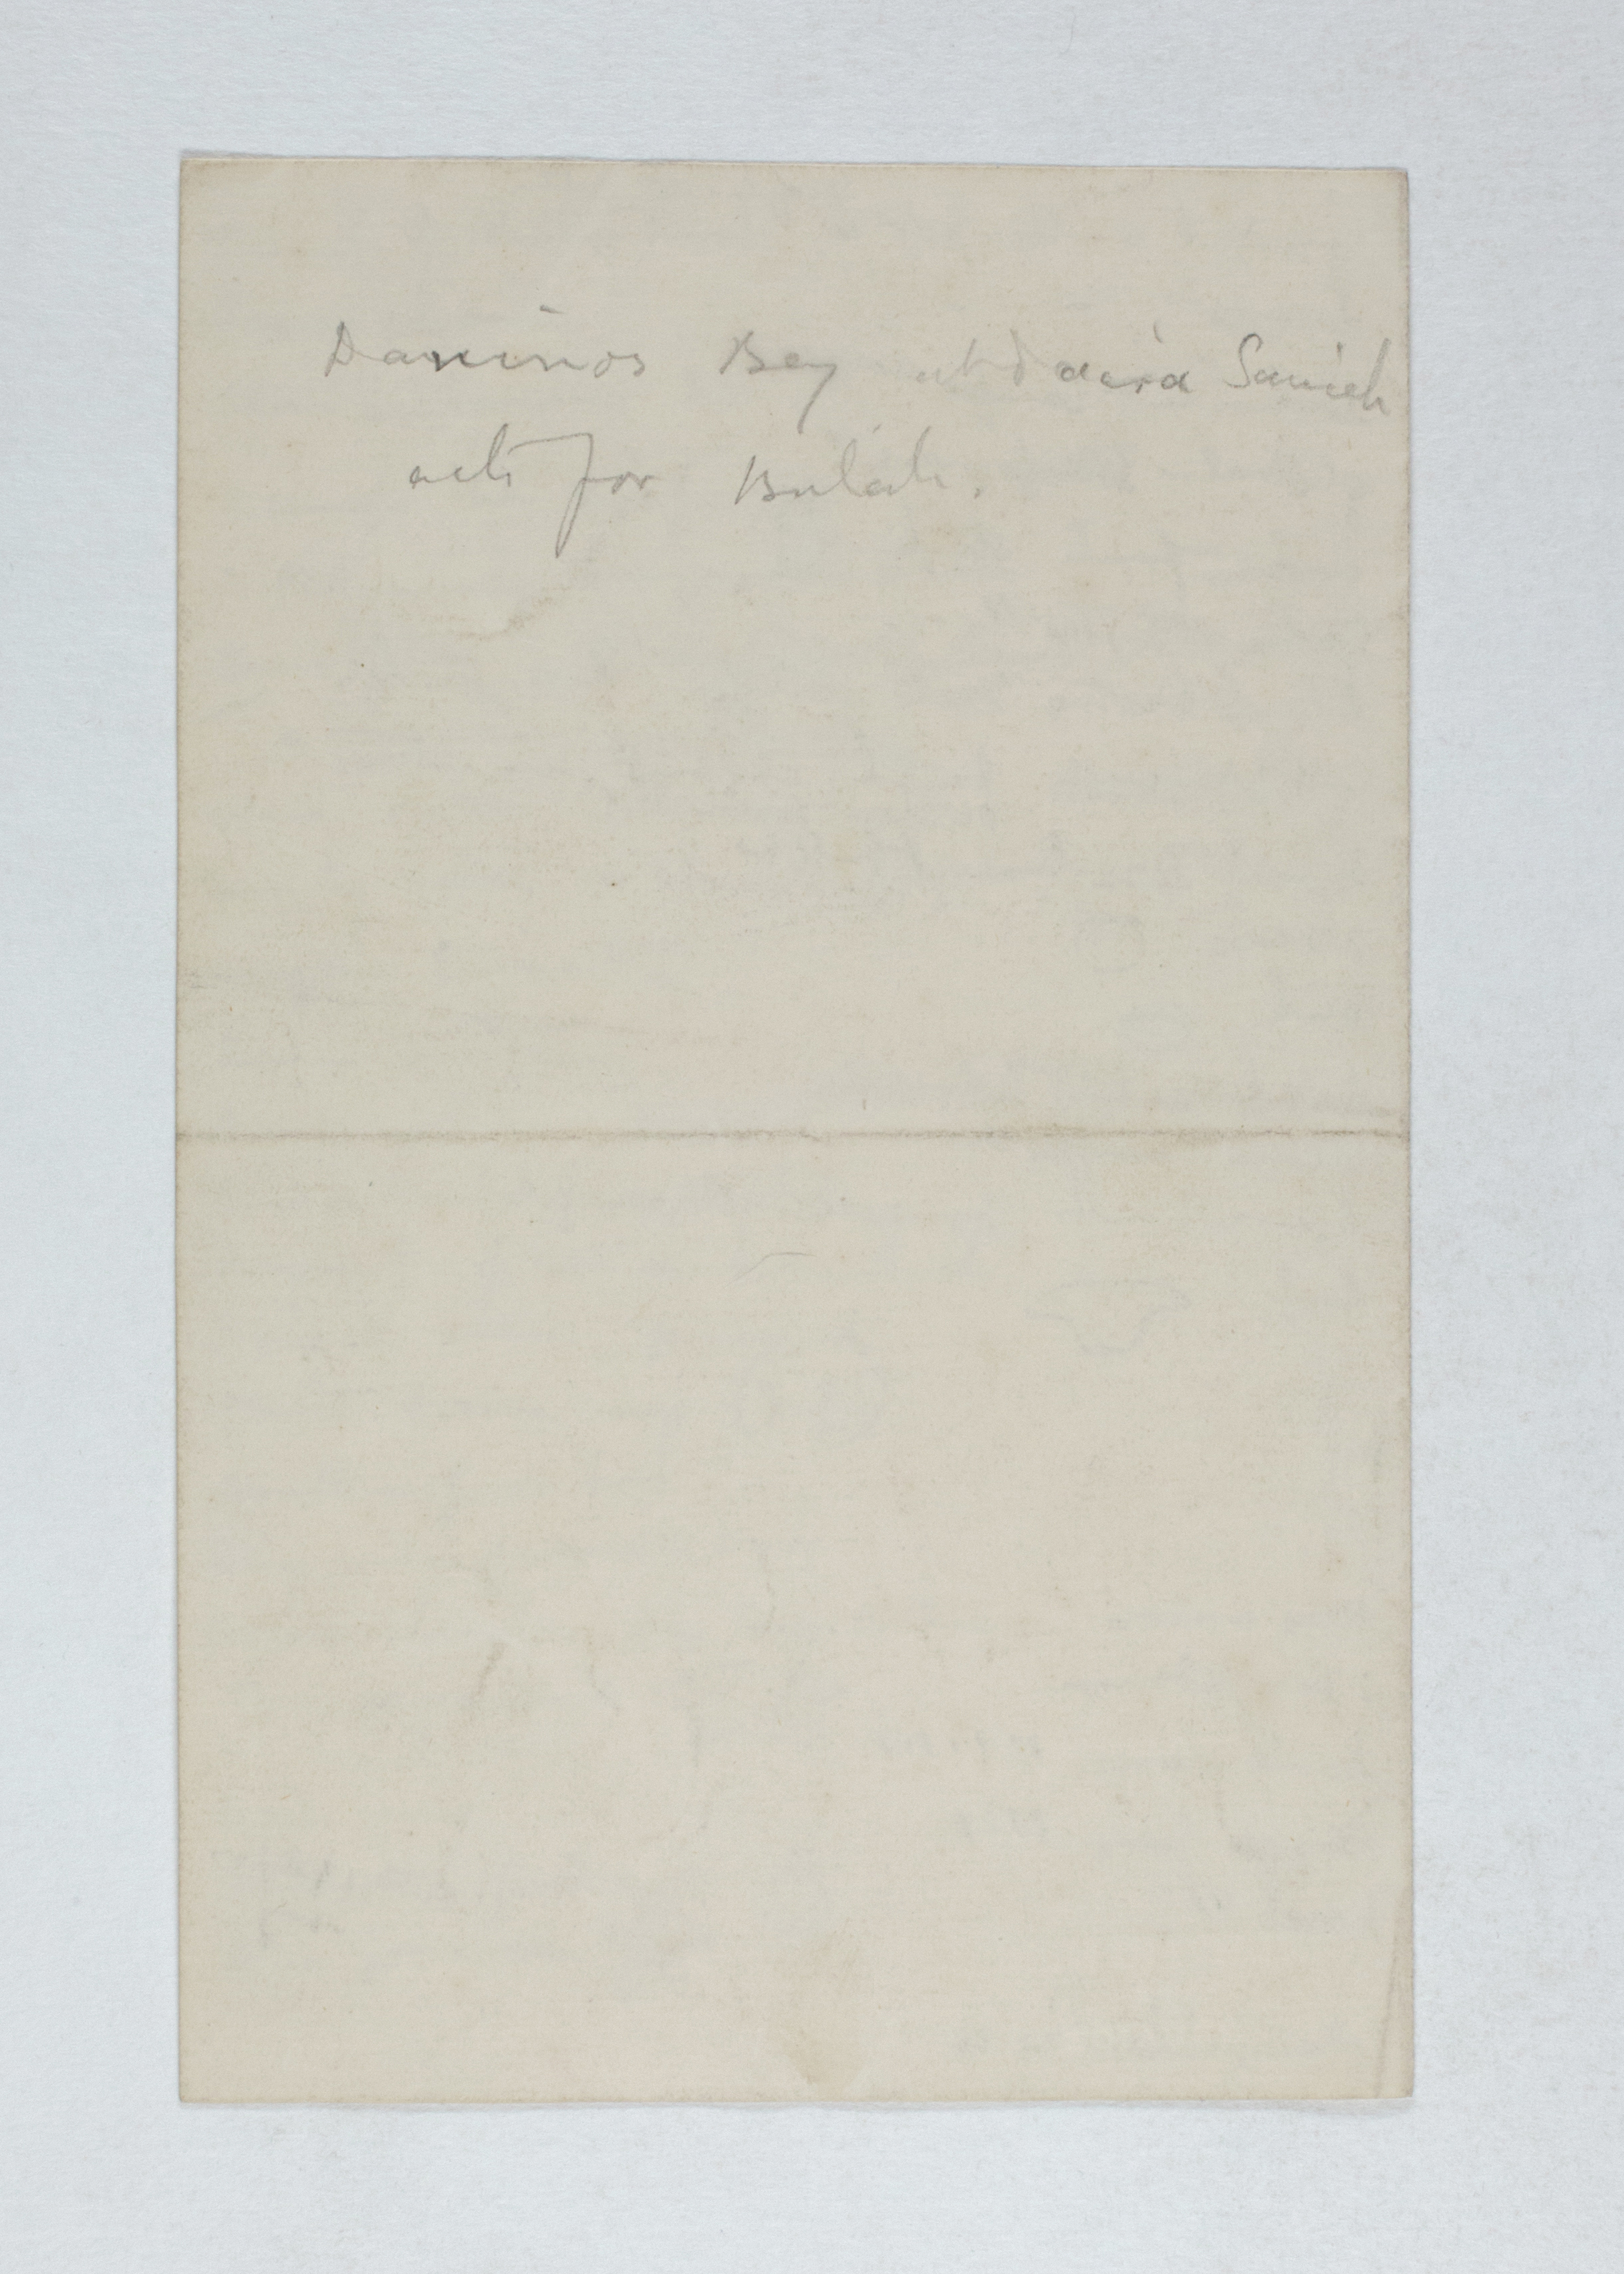 Daninos Bey at Daira Sanieh
acts for Bulak.